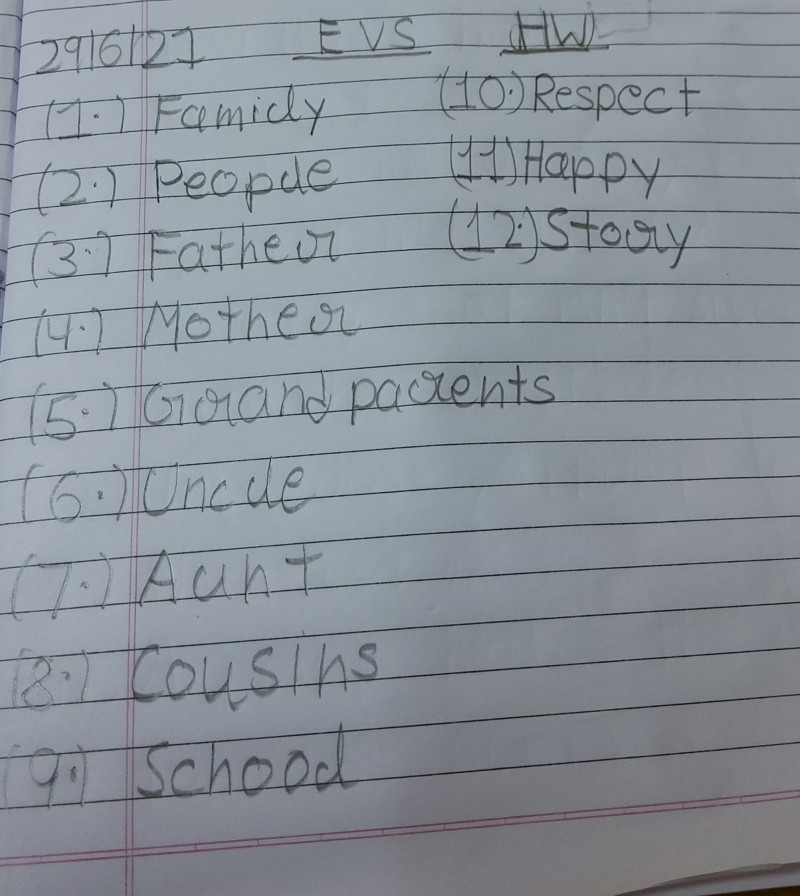 29/6/21 EVS HW
(1.) Family
(2.) People
(3.) Father
(4.) Mother
(5.) Grand parents
(6.) Uncle
(7.) Aunt
(8.) Cousins
(9.) School
(10.) Respect
(11) Happy
(12.) Story